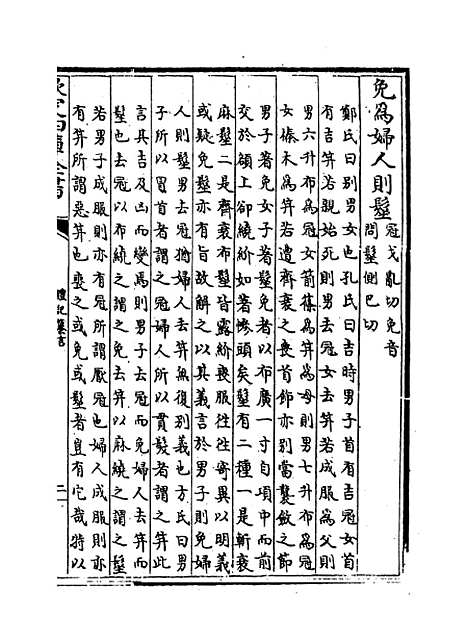 免為婦人則髽冠戈亂切免音
問髽側巴切
鄭氏曰别男女也孔氏曰吉時男子首有吉冠女首
有吉笄若親始死則男去冠女去笄若成服為父則
男六升布為冠女箭篠為笄為母則男七升布為冠
女榛木為笄若遭齊衰之喪首飾亦别當襲斂之節
男子著免女子著髽免者以布廣一寸自項中而前
交於額上却繞紒如著幓頭矣髽有二種一是斬衰
麻髽二是齊衰布髽皆露紒喪服往往寄異以明義
或疑免髽亦有旨故解之以其義言於男子則免婦
人則髽男去冠猶婦人去笄無復别義也方氏曰男
子所以冒首者謂之冠婦人所以貫髪者謂之笄此
言其吉及凶而變焉則男子去冠而免婦人去笄而
髽也去冠以布繞之謂之免去笄以麻繞之謂之髽
若男子成服則亦有冠所謂厭冠也婦人成服則亦
有笄所謂惡笄也喪之或免或髽者豈有它哉特以
欽定四庫全書
禮記纂言
二